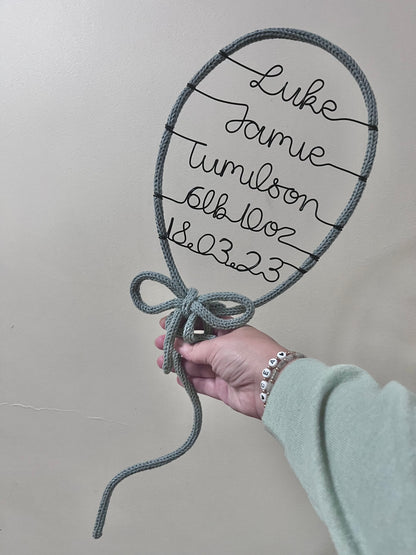 Luke
Jamie
Tumilson
6lb 10oz
18.03.23